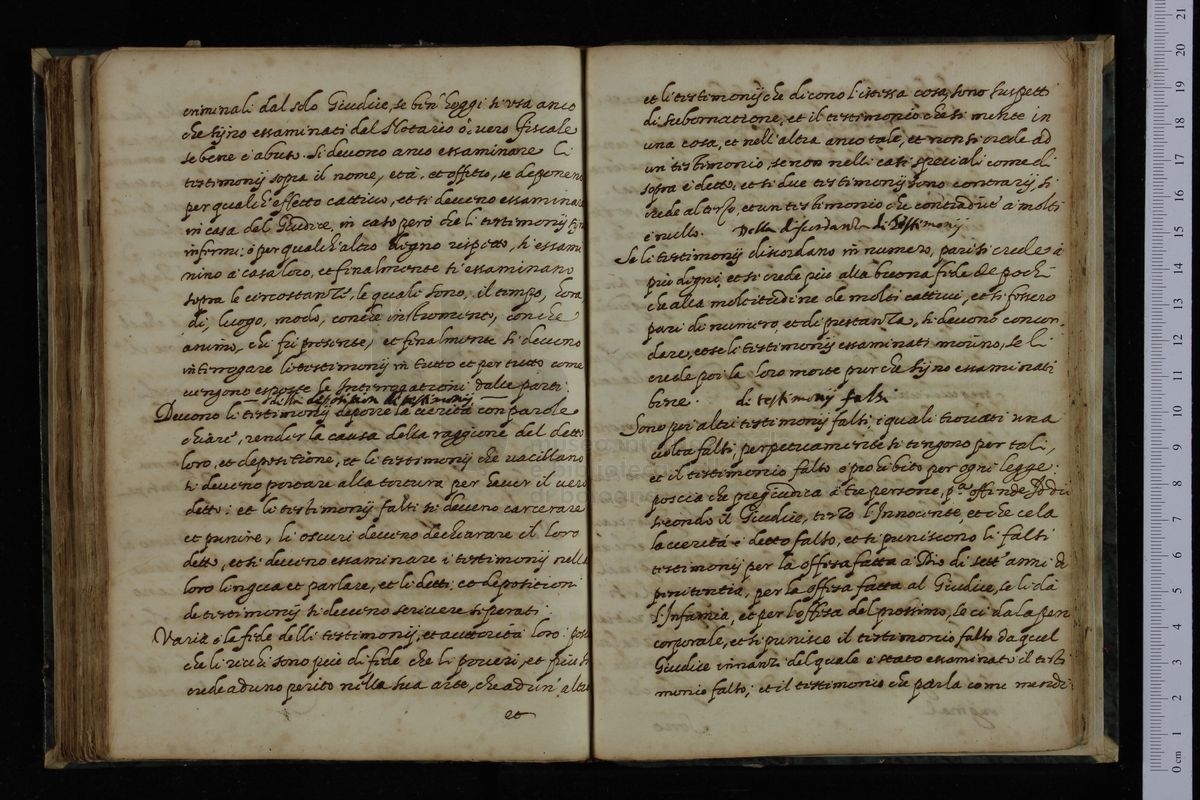 criminali dal solo Giudice, se ben' hoggi si usa anco
che sijno essaminati dal Notario ò, vero fiscale
sebene è abuso. Si devono anco essaminare li
testimonij sopra il nome, età, et offitio, se deponeno
per qualch' effetto cattivo, et si deveno essaminar
in casa del Giudice, in caso però che li testimonij sijn
infirmi, ò per qualch' altro degno rispetto, si essami
nino à casa loro, et finalmente si essaminano
sopra le circostanze, le quali sono, il tempo, hora
di, luogo, modo, con che instromento, con che
animo, chi fù presente, et finalmente si deveno
interrogare li testimonij in tutto et per tutto come
vengono esposte le Interrogationi dalle parti.
della depositione di testimonij
Devono li testimonij deporre la verità con parole
chiare, render la causa della raggione del detto
loro, et depositione, et li testimonij che vacillano
si deveno portare alla tortura per haver il vero
detto: et li testimonij falsi si deveno carcerare
et punire, li oscuri deveno dechiarare il loro
detto, et si deveno essaminare i testimonij nell
loro lingua et parlare, et li detti, et depositioni
de testimonij si deveno scrivere separati.
Varia è la fede delli testimonij, et autorità loro: posc
che li ricchi sono più di fede che li poveri, et più si
crede ad uno perito nella sua arte, che ad un' altro
et
et li testimonij che dicono l'istessa cosa, sono suspetti
di subornatione, et il testimonio che si mente in
una cosa, et nell' altra anco tale, et non si crede ad
un testimonio, se non nelli casi speciali come di
sopra è detto, et si due testimonij sono contrarij, si
crede al terzo, et un testimonio che contradice à molti
è nullo. Della discordanza di Testimonij
Se li testimonij discordano in numero, pari si crede à
più degni, et si crede più alla buona fede de pochi
che alla moltitudine de molti cattivi, et si fossero
pari di numero, et di prestanza, si devono concor-
dare, et se li testimonij essaminati morino, se li
crede poi la loro morte pur che sijno essaminati
bene. di testimonij falsi
Sono poi altri testimonij falsi, i quali trovati una
volta falsi, perpetuamente si tengono per tali,
et il testimonio falso è prohibito per ogni legge:
poscia che pregiudica à tre persone, p.ª offende Iddio
secondo il Giudice, terzo l'Innocente, et che cela
la verità è detto falso, et si puniscono li falsi
testimonij per la offesa fatta à Dio di sett' anni di
penitentia, per la offesa fatta al Giudice, se li dà
l'Infamia, et per l'offesa del prossimo, se ci da la pen
corporale, et si punisce il testimonio falso da quel
Giudice innanzi del quale è stato essaminato il testi
monio falso; et il testimonio che parla come mendi